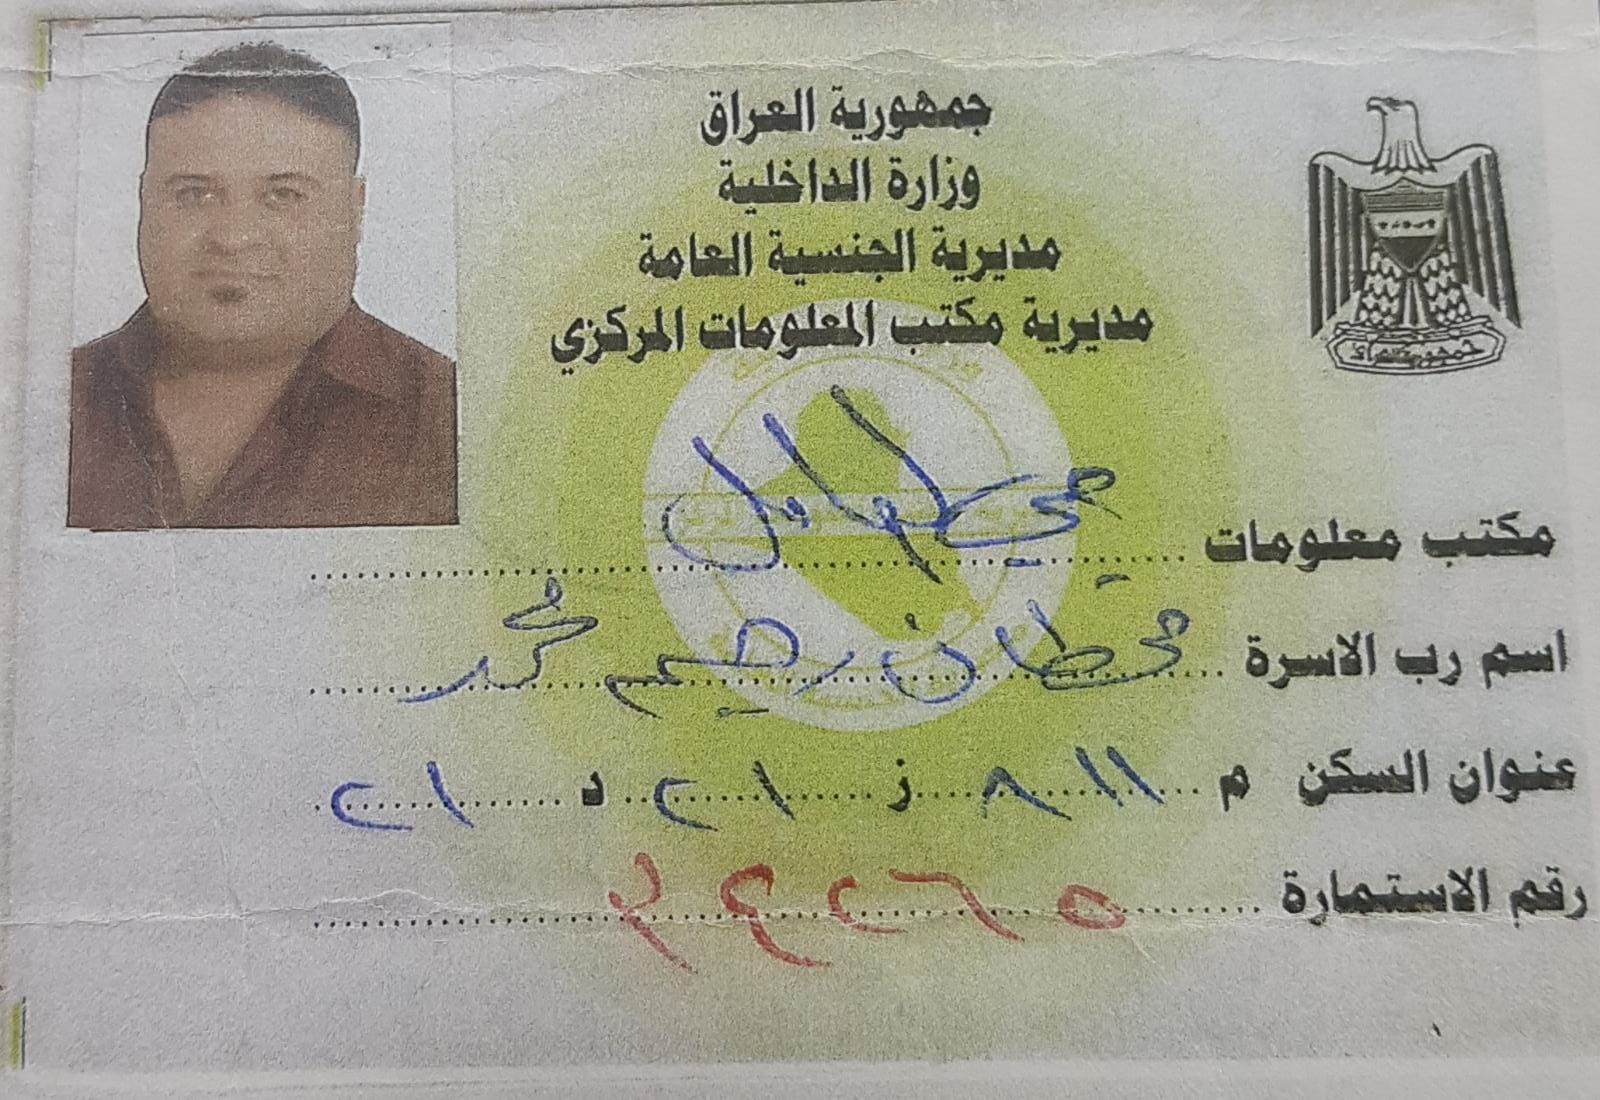 جمهورية العراق
وزارة الداخلية
مديرية الجنسية العامة
مديرية مكتب المعلومات المركزي
مكتب معلومات
اسم رب الاسرة قحطان رهيم محمد
عنوان السكن م ٨١١ ز ٢١ د ٢١
رقم الاستمارة